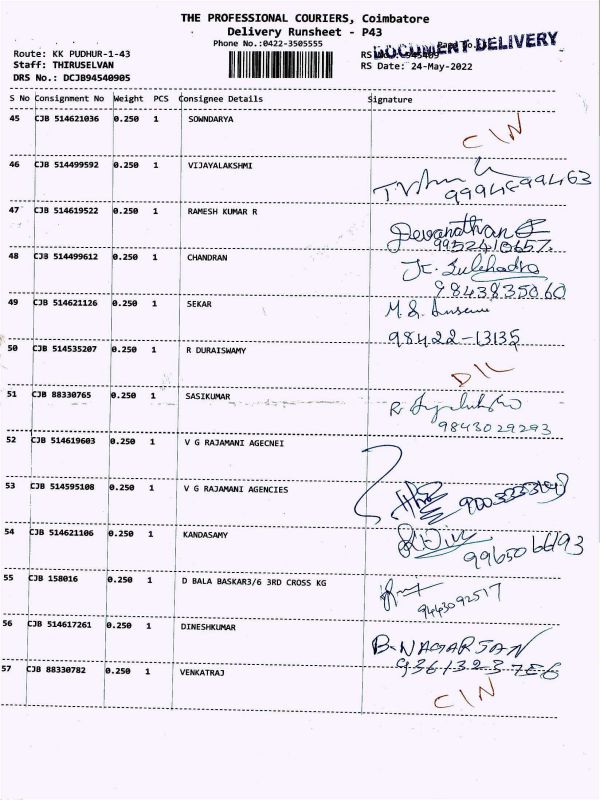 THE PROFESSIONAL COURIERS, Coimbatore
Delivery Runsheet - P43
Phone No.:0422-3505555
DOCUMENT DELIVERY
Route: KK PUDHUR-1-43
Staff: THIRUSELVAN
RS Date: 24-May-2022
DRS No.: DCJB94540905
S No Consignment No Weight PCS Consignee Details Signature
45 CJB 514621036 0.250 1 SOWNDARYA CIN
46 CJB 514499592 0.250 1 VIJAYALAKSHMI
47 CJB 514619522 0.250 1 RAMESH KUMAR R Devanathan
9952410657.
48 CJB 514499612 0.250 1 CHANDRAN
9843835060
49 CJB 514621126 0.250 1 SEKAR
98422-13135
50 CJB 514535207 0.250 1 R DURAISWAMY D/L
51 CJB 88330765 0.250 1 SASIKUMAR
9843029293
52 CJB 514619603 0.250 1 V G RAJAMANI AGECNEI
53 CJB 514595108 0.250 1 V G RAJAMANI AGENCIES
54 CJB 514621106 0.250 1 KANDASAMY
55 CJB 158016 0.250 1 D BALA BASKAR3/6 3RD CROSS KG
9443092517
56 CJB 514617261 0.250 1 DINESHKUMAR B.NAGARJAN
57 CJB 88330782 0.250 1 VENKATRAJ CIN